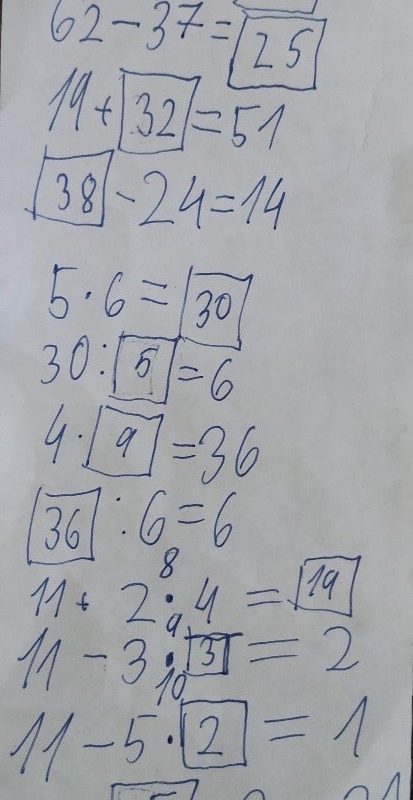 62-37=25
19+32=51
38-24=14
5·6=30
30:5=6
4·9=36
36:6=6
8
11+2·4=19
9
11-3·3=2
10
11-5·2=1